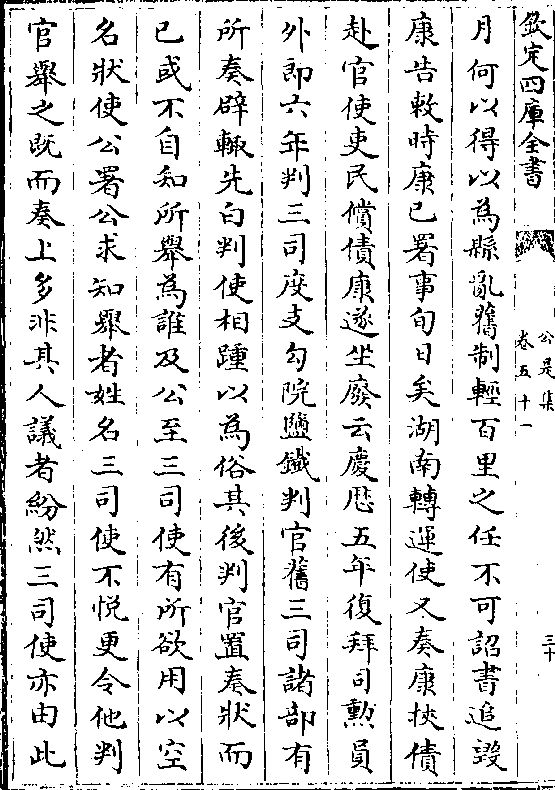 欽定四庫全書
公是集
卷五十一
三十
月何以得以為縣亂舊制輕百里之任不可詔書追毀
康告敕時康已署事旬日矣湖南轉運使又奏康挾債
赴官使吏民償債康遂坐廢云慶厯五年復拜司勲員
外郎六年判三司度支勾院鹽鐵判官舊三司諸部有
所奏辟輙先白判使相踵以為俗其後判官置奏狀而
已或不自知所舉為誰及公至三司使有所欲用以空
名狀使公署公求知舉者姓名三司使不悅更令他判
官舉之既而奏上多非其人議者紛然三司使亦由此